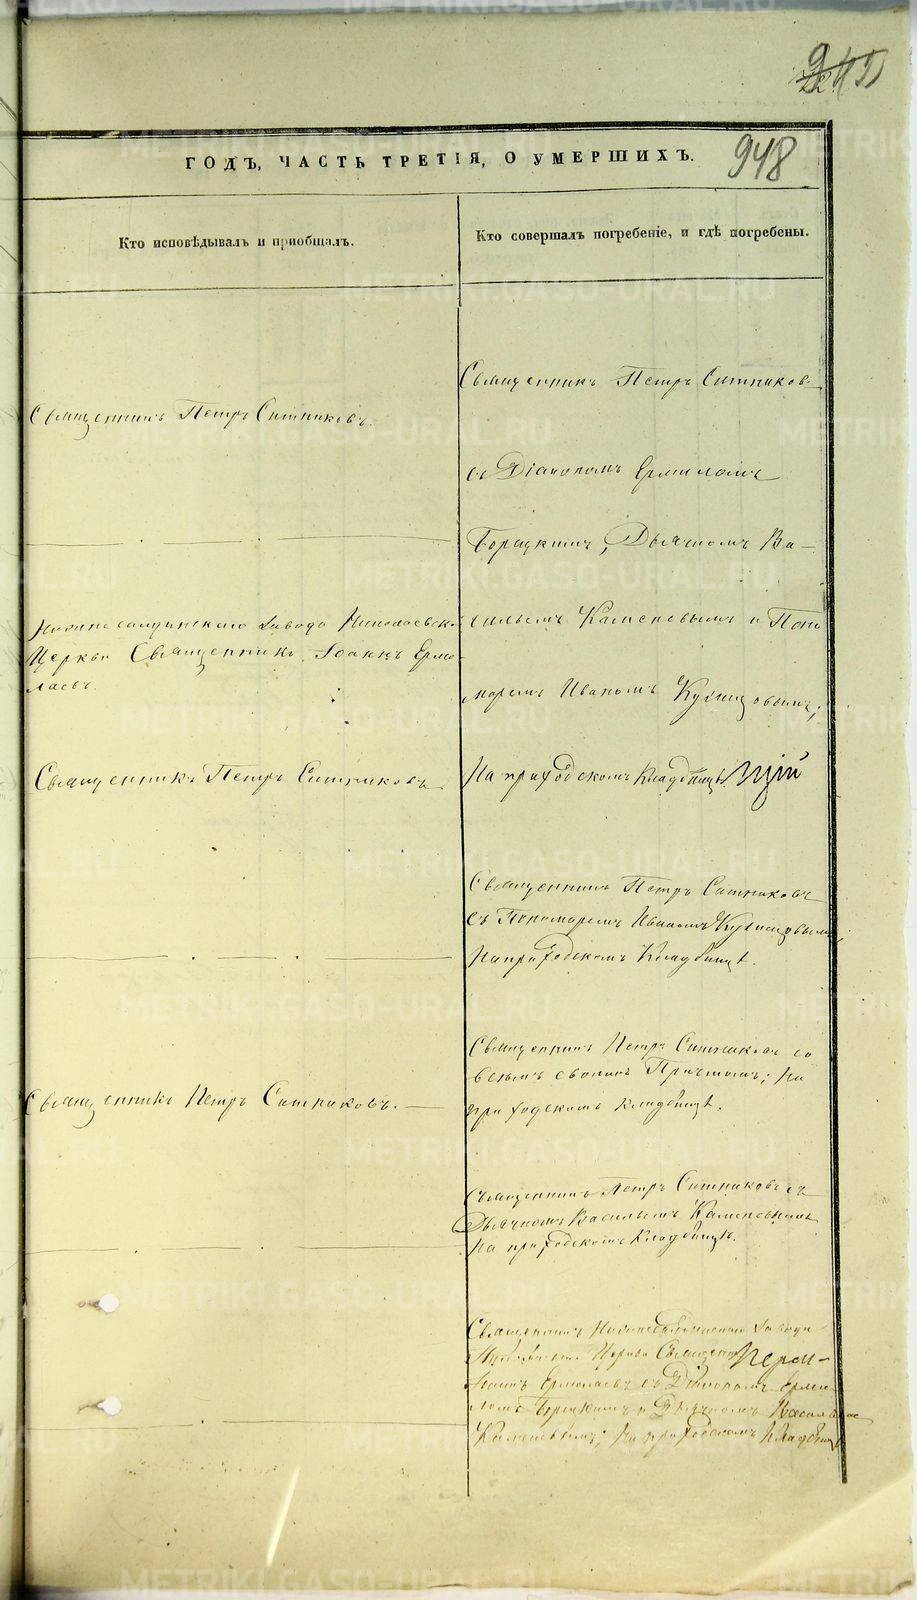 948
ГОДЪ, ЧАСТЬ ТРЕТІЯ, О УМЕРШИХЪ.
Кто исповѣдывалъ и пріобщалъ.
Кто совершалъ погребеніе, и гдѣ погребены.
Священникъ Петръ Ситниковъ.
Нижнесалдинскаго Завода Николаевск.
Церкви Священникъ Іоаннъ Ермо-
лаевъ.
Священникъ Петръ Ситниковъ
Священникъ Петръ Ситниковъ.
Священникъ Петръ Ситниковъ
съ Діакономъ Ермиломъ
Борецкимъ, Дьячкомъ Ва-
сильемъ Каменевымъ и Поно
маремъ Иваномъ Кузнецовымъ;
На приходскомъ Кладбищѣ.
Священникъ Петръ Ситниковъ
съ Пономаремъ Иваномъ Кузнецовымъ,
На приходскомъ Кладбищѣ.
Священникъ Петръ Ситниковъ со
всѣмъ своимъ Причтомъ; На
приходскомъ кладбищѣ.
Священникъ Петръ Ситниковъ съ
Дьячкомъ Васильемъ Каменевымъ
На приходскомъ Кладбищѣ.
Священникъ Завода
Церкви
Іоаннъ Ермолаевъ съ Діакономъ Ерми-
ломъ Борецкимъ и Дьячкомъ Васильемъ
Каменевымъ; На приходскомъ Кладбищѣ
METRIKI.GASO-URAL.RU